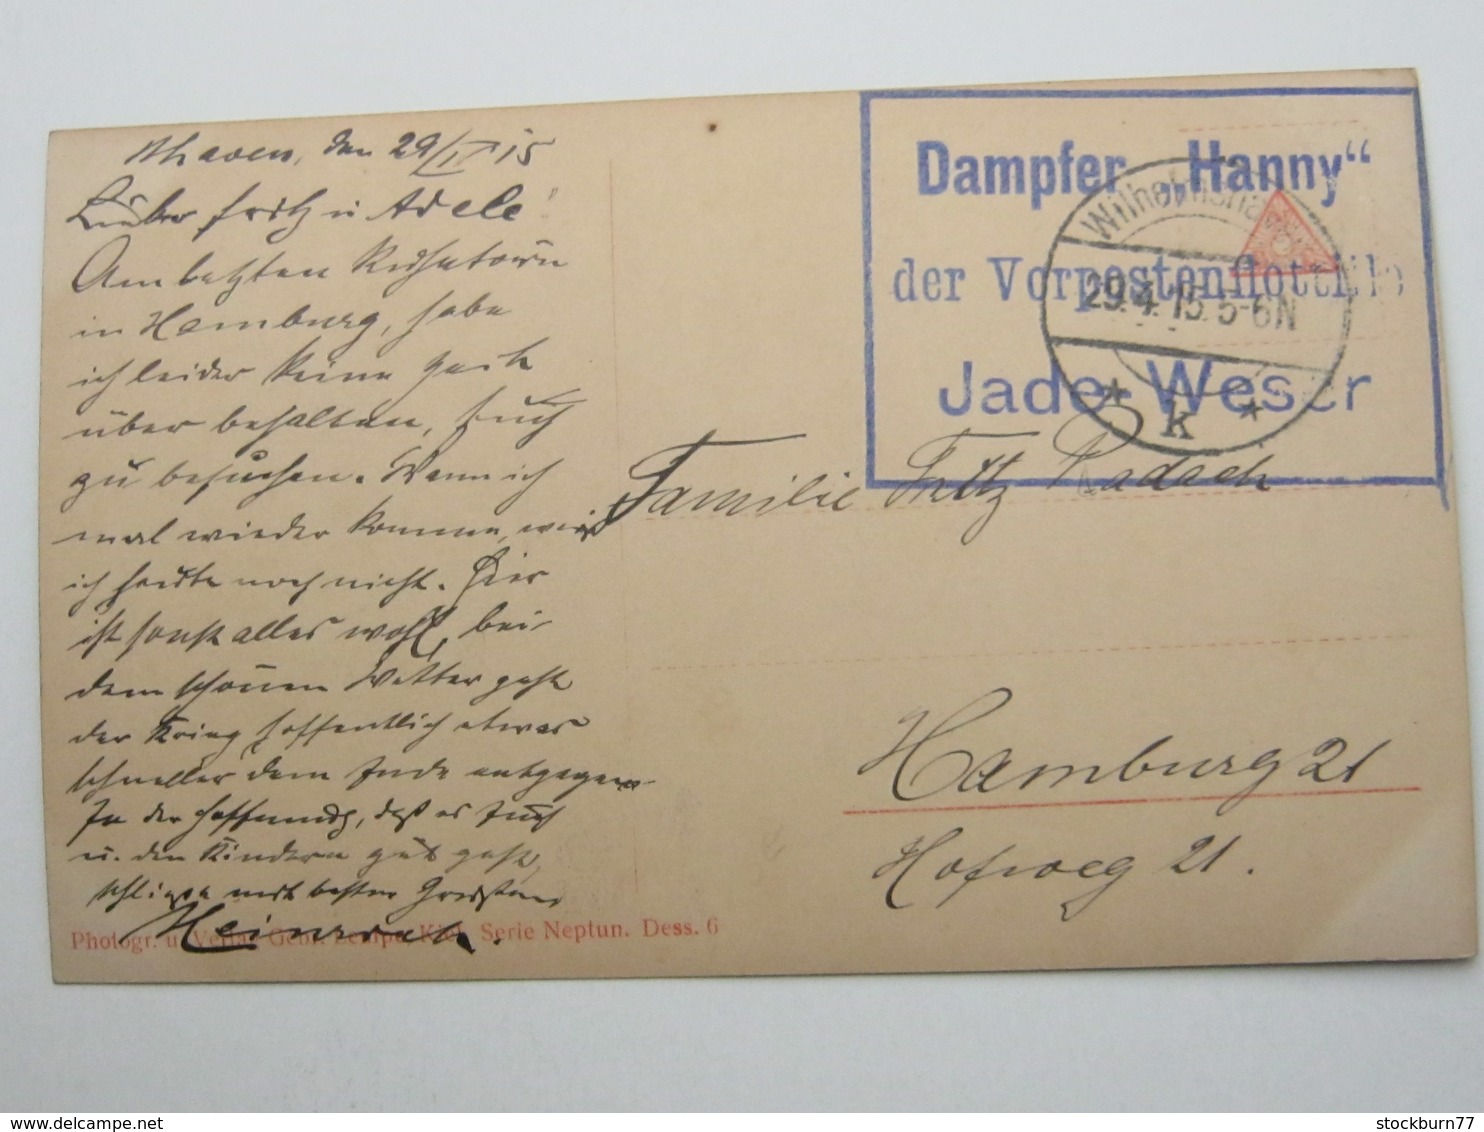 Whaven, den 29/IV 15
Lieber Fritz u Adele!
Am letzten
in Hamburg, habe
ich leider keine Zeit
über behalten, Euch
zu besuchen. Wenn ich
mal wieder komme, weiß
ich heute noch nicht. Hier
ist sonst alles wohl, bei
dem schönen Wetter geht
der Krieg hoffentlich etwas
schneller dem Ende entgegen
In der Hoffnung, daß es Euch
u. den Kindern gut geht,
schließe mit besten Grüßen
Heinrich.
Photogr. u. Verlag Gebr. Lempe, Kiel. Serie Neptun. Dess. 6
Dampfer „Hanny“
der Vorpostenflottille
Jade-Weser
Wilhelmshaven
29.4.15.5-6N
* k *
Familie Fritz Radasch
Hamburg 21
Hofweg 21.
stockburn77